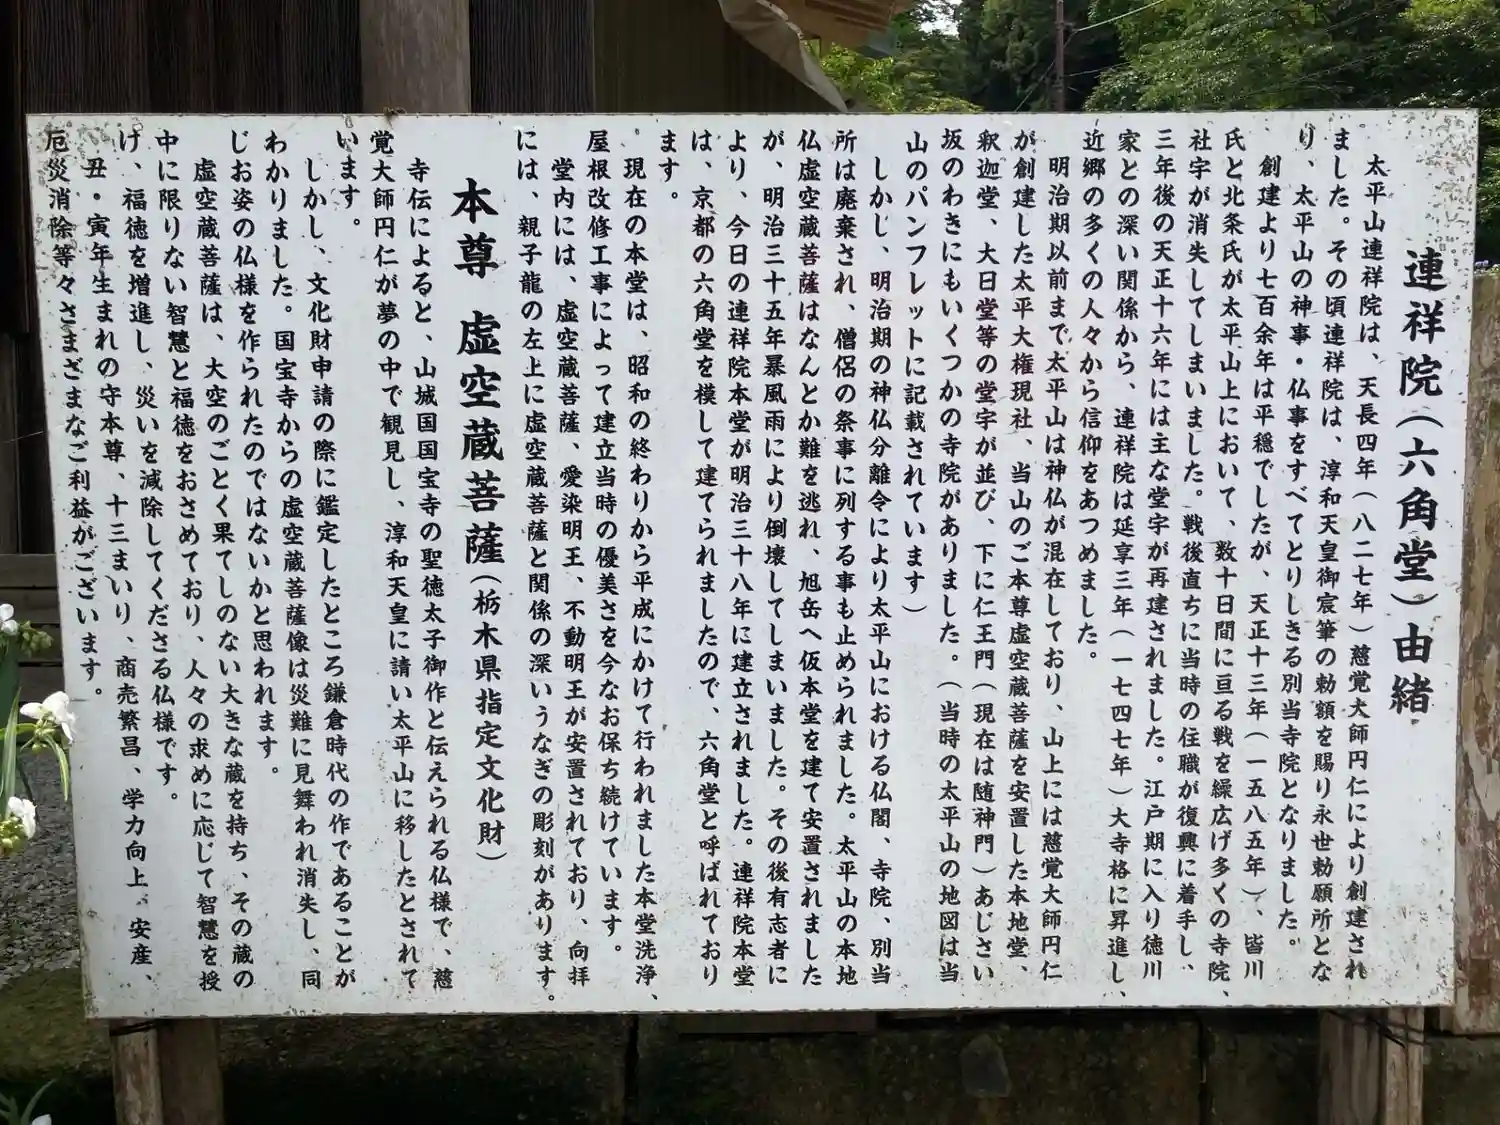 連祥院（六角堂）由緒
太平山連祥院は、天長四年（八二七年）慈覚大師円仁により創建され
ました。その頃連祥院は、淳和天皇御宸筆の勅額を賜り永世勅願所とな
り、太平山の神事・仏事をすべてとりしきる別当寺院となりました。
創建より七百余年は平穏でしたが、天正十三年（一五八五年）、皆川
氏と北条氏が太平山上において、数十日間に亘る戦を繰広げ多くの寺院、
社宇が消失してしまいました。戦後直ちに当時の住職が復興に着手し、
三年後の天正十六年には主な堂宇が再建されました。江戸期に入り徳川
家との深い関係から、連祥院は延享三年（一七四七年）大寺格に昇進し、
近郷の多くの人々から信仰をあつめました。
明治期以前まで太平山は神仏が混在しており、山上には慈覚大師円仁
が創建した太平大権現社、当山のご本尊虚空蔵菩薩を安置した本地堂、
釈迦堂、大日堂等の堂宇が並び、下に仁王門（現在は随神門）あじさい
坂のわきにもいくつかの寺院がありました。（当時の太平山の地図は当
山のパンフレットに記載されています）
しかし、明治期の神仏分離令により太平山における仏閣、寺院、別当
所は廃棄され、僧侶の祭事に列する事も止められました。太平山の本地
仏虚空蔵菩薩はなんとか難を逃れ、旭岳へ仮本堂を建て安置されました
が、明治三十五年暴風雨により倒壊してしまいました。その後有志者に
より、今日の連祥院本堂が明治三十八年に建立されました。連祥院本堂
は、京都の六角堂を模して建てられましたので、六角堂と呼ばれており
ます。
現在の本堂は、昭和の終わりから平成にかけて行われました本堂洗浄、
屋根改修工事によって建立当時の優美さを今なお保ち続けています。
堂内には、虚空蔵菩薩、愛染明王、不動明王が安置されており、向拝
には、親子龍の左上に虚空蔵菩薩と関係の深いうなぎの彫刻があります。
本尊 虚空蔵菩薩（栃木県指定文化財）
寺伝によると、山城国国宝寺の聖徳太子御作と伝えられる仏様で、慈
覚大師円仁が夢の中で観見し、淳和天皇に請い太平山に移したとされて
います。
しかし、文化財申請の際に鑑定したところ鎌倉時代の作であることが
わかりました。国宝寺からの虚空蔵菩薩像は災難に見舞われ消失し、同
じお姿の仏様を作られたのではないかと思われます。
虚空蔵菩薩は、大空のごとく果てしのない大きな蔵を持ち、その蔵の
中に限りない智慧と福徳をおさめており、人々の求めに応じて智慧を授
け、福徳を増進し、災いを減除してくださる仏様です。
丑・寅年生まれの守本尊、十三まいり、商売繁昌、学力向上、安産、
厄災消除等々さまざまなご利益がございます。